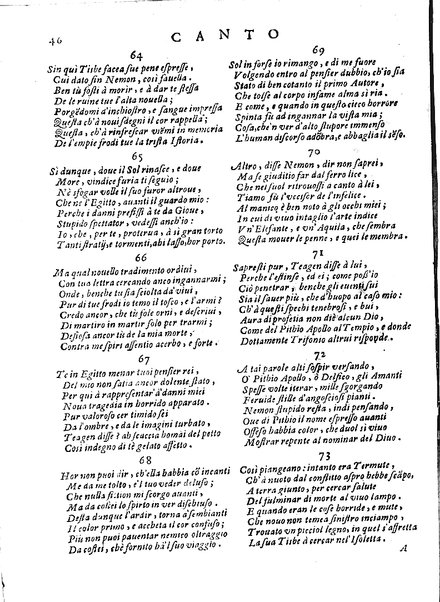 46 CANTO
64
Sin quì Tisbe facea sue pene espresse,
Cui dato fin Nemon, così favella.
Ben tù fosti à morir, e à dar te stessa
De le ruine tue l'alta novella;
Porgedomi à'inchiostri, e sangue impressa
Questa ch'à novi sdegni il cor rappella;
Questa ch'à rinfrescar viemi in memoria
De l'empie frodi tue la trista Istoria.
65
Sì dunque, dove il Sol rinasce, e dove
More, vindice furia ti seguio;
Nè sfogar volle il suo furor altrove,
Che ne l'Egitto, avanti il guardo mio:
Perche i danni prefissi à te da Giove,
Stupido spettator, vedessi anch'io:
O, che, per te, proterva, à sì gran torto
Tanti stratij, e tormenti, ahi lasso, hor porto.
66
Ma qual novello tradimento ordivi,
Con tua lettera cercando anco ingannarmi;
Onde, benche tu sia sciolta da' vivi,
Pur di tue frodi io temo il tosco, e l'armi?
Credo ancor, che tu sole orni, e descrivi,
Di martiro in martir solo per trarmi;
Desiosa ancor tis de la mia morte;
Contra me spiri assentio acerbo, e forte.
67
Te in Egitto menar tuoi pensier rei,
Del mio non satia ancor dolente stato,
Per qui à rappresentar à' danni miei
Nova tragedia in horrido apparato.
Pur valoroso cor timido sei
Da l'ombre, e da le imagini turbato,
Teagen disse? ah scaccia homai del petto
Così indegno di te gelato affetto.
68
Hor non puoi dir, ch'ella habbia cō incanti
Me da me tolto, e'l tuo veder deluso;
Che nulla fition mi scorgo avanti,
Ma da colei lo spirto in ver dischiuso.
Desta dunque l'ardir, torna a' sembianti
Il color primo, e accheta il cor confuso;
Più non puoi paventar nemico oltraggio
Da costei, chè fornito hà'l suo viaggio.
69
Sol in forse io rimango, e di me fuore
Volgendo entro al pensier dubbio, ch'io sia
Stato di ben cotanto il primo Autore,
Che tolse al corpo infame alma sì ria.
E come, e quando in questo cieco horrore
Spinta fù ad ingannar la vista mia;
Cosa, che'n ver d'alto stupore immenso
L'human discorso adōbra, e abbaglia il sēso.
70
Altro, disse Nemon, dir non saprei,
Ma se giuditio far dal ferro lice,
Che nei suol ritrovossi a canto à lei,
Tiamo fù l'uccisor de l'infelice.
Al manico è ben noto à gli occhi miei;
In cui di vivo intaglio l'arte indice
Vn'Elefante, e vn'Aquila, che sembra
Questa mover le penne, e quei le membra.
71
Sapresti pur, Teagen disse à lui,
Perche d'essa, ed ei; come poss'io
Ciò penetrar, benche gli eventi sui
Sia il saver più, che d'huopo al caso mio:
Che chi à questi spechi tenebrosi, e bui,
Aura di profetia non diè alcun Dio,
Come del Pithio Apollo al Tempio, e donde
Dottamente Trifonio altrui risponde.
72
A tai parole alti sospir versando,
O' Pithio Apollo, ò Delfico, gli Amanti
Spesse volte iterar, mille sgorgando
Feruide stille d'angosciosi pianti.
Nemon stupido resta, indi pensando,
Que di Pithio il nome espresso avanti
Offeso habbia color, che duol sì vivo
Mostrar repente al nominar del Divo.
73
Così piangeano: intanto era Termute,
Ch'à nuoto dal conflitto aspro hebbe scāpo,
A terra giunto, per cercar salute
Del fulminar di morte al vivo lampo.
E quando eran le cose horride, e mute,
Che novo non temea sinistro inciampo,
Trovato un picciol legno, in quel s'affretta
La sua Tisbe à cercar nel'Isoletta.
A